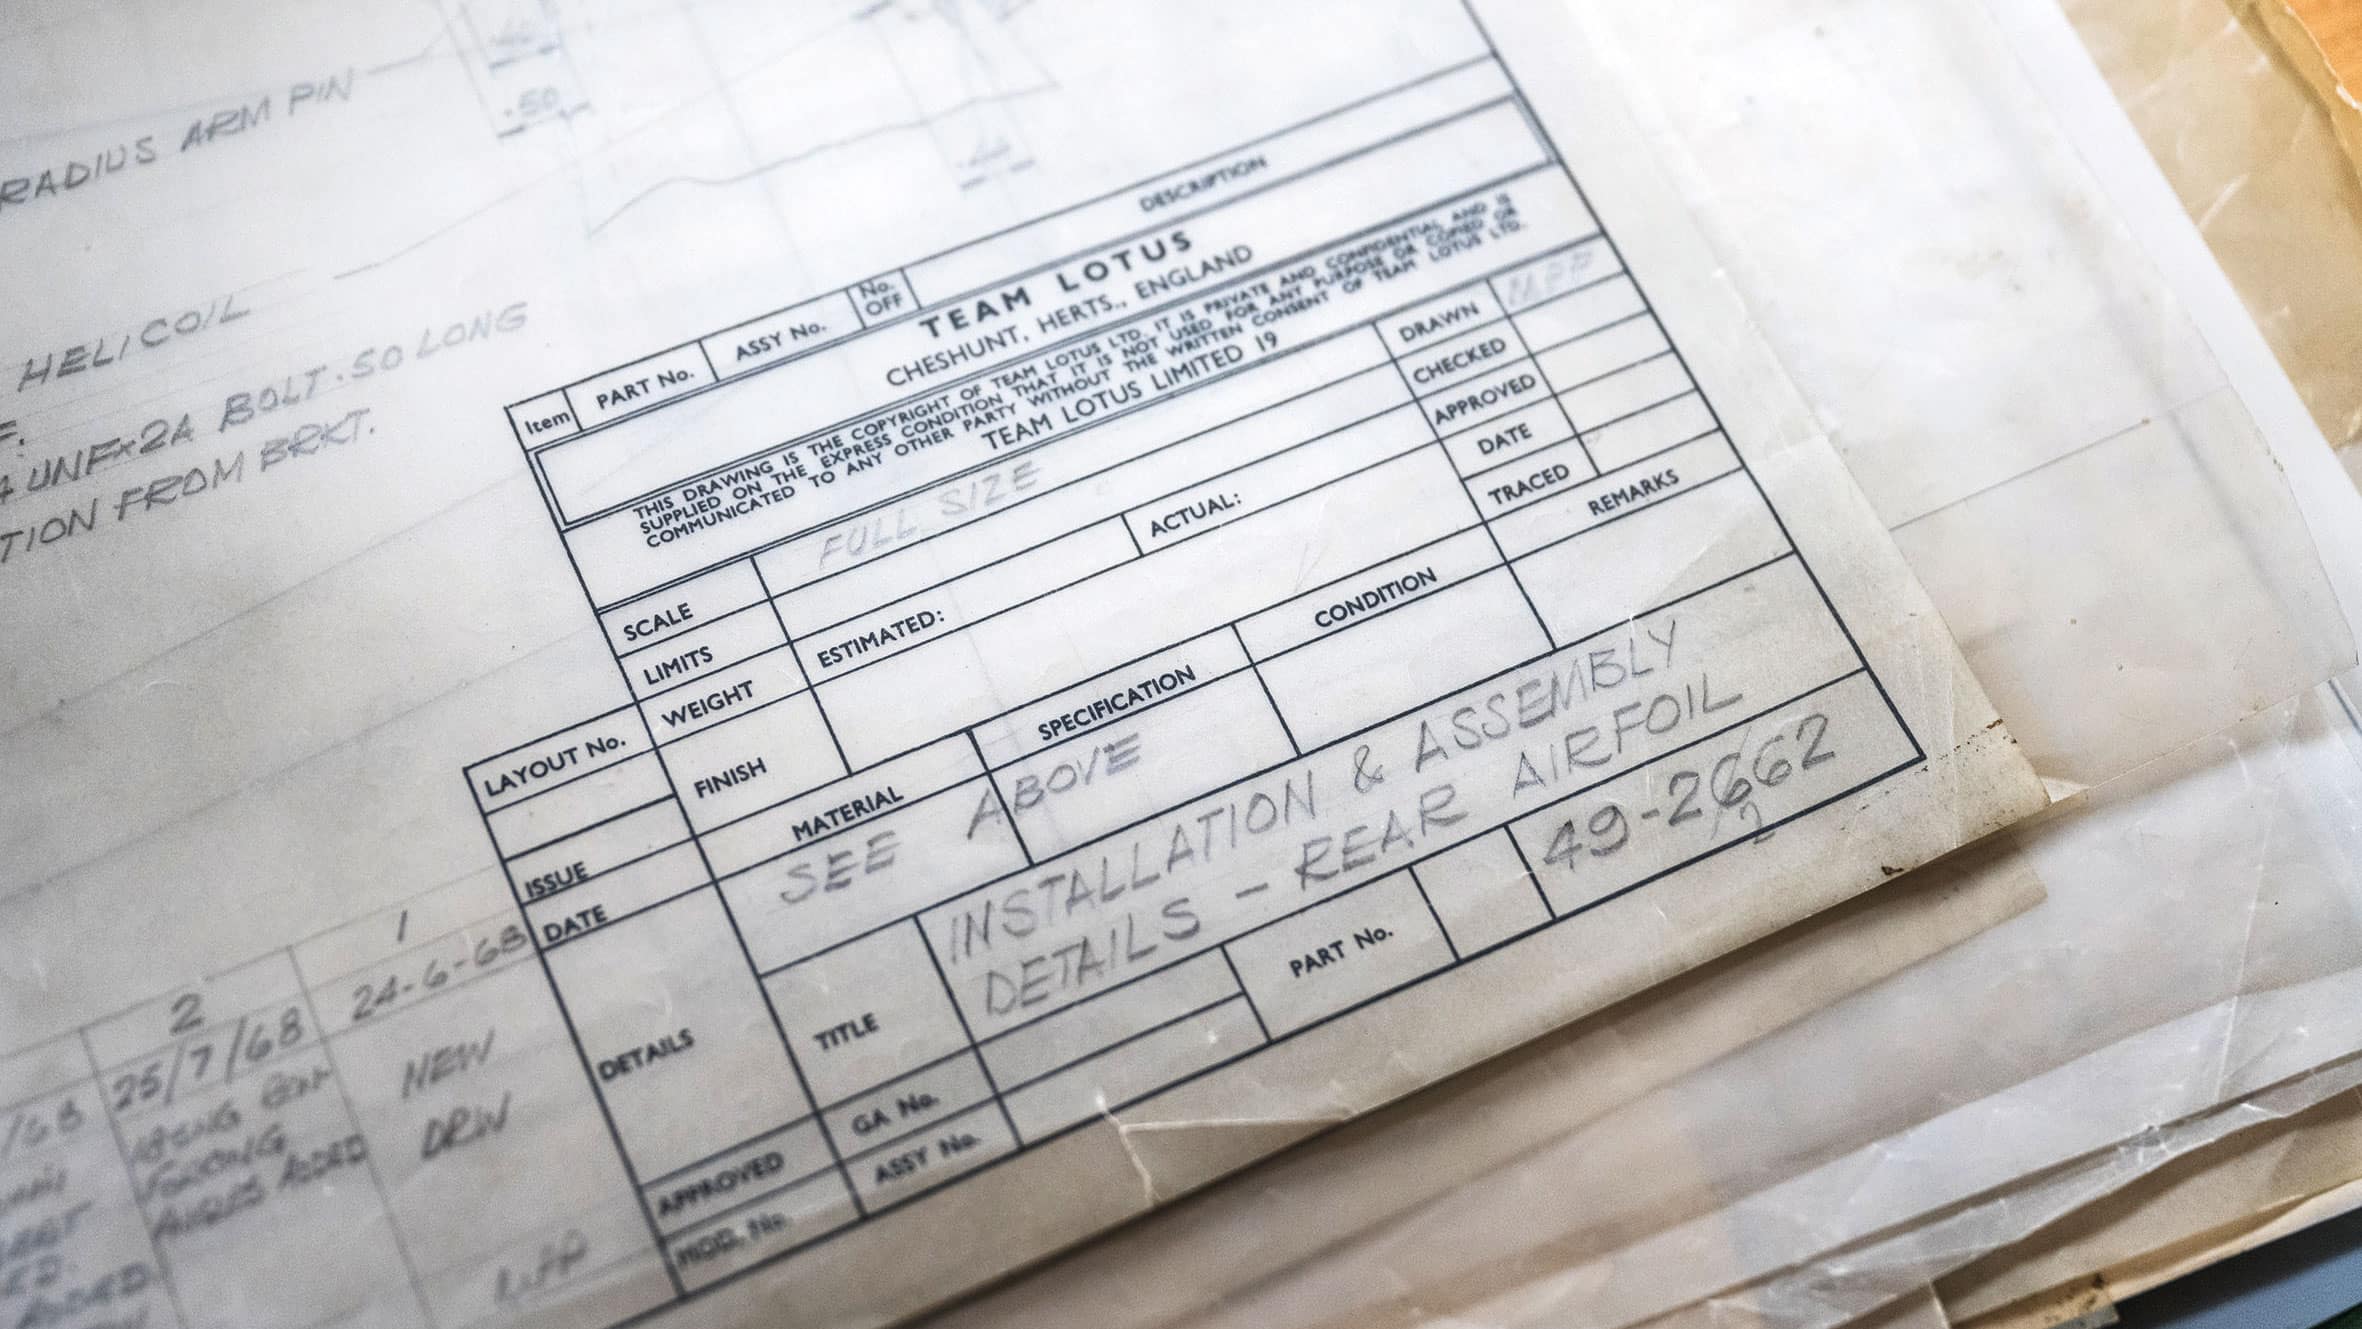 .50
RADIUS ARM PIN
HELICOIL
UNF×2A BOLT .50 LONG
TION FROM BRKT.
Item
PART No.
ASSY No.
No. OFF
DESCRIPTION
TEAM LOTUS
CHESHUNT, HERTS., ENGLAND
THIS DRAWING IS THE COPYRIGHT OF TEAM LOTUS LTD. IT IS PRIVATE AND CONFIDENTIAL AND IS
SUPPLIED ON THE EXPRESS CONDITION THAT IT IS NOT USED FOR ANY PURPOSE OR COPIED OR
COMMUNICATED TO ANY OTHER PARTY WITHOUT THE WRITTEN CONSENT OF TEAM LOTUS LTD.
TEAM LOTUS LIMITED 19
SCALE
FULL SIZE
LIMITS
WEIGHT
ESTIMATED:
ACTUAL:
FINISH
DRAWN
CHECKED
APPROVED
DATE
TRACED
MATERIAL
SPECIFICATION
CONDITION
REMARKS
SEE ABOVE
TITLE
INSTALLATION & ASSEMBLY
DETAILS - REAR AIRFOIL
GA No.
ASSY No.
PART No.
49-2662
2
LAYOUT No.
ISSUE
DATE
DETAILS
APPROVED
MOD. No.
1
24-6-68
NEW
DRW
2
25/7/68
ADDED
/68
ADDED